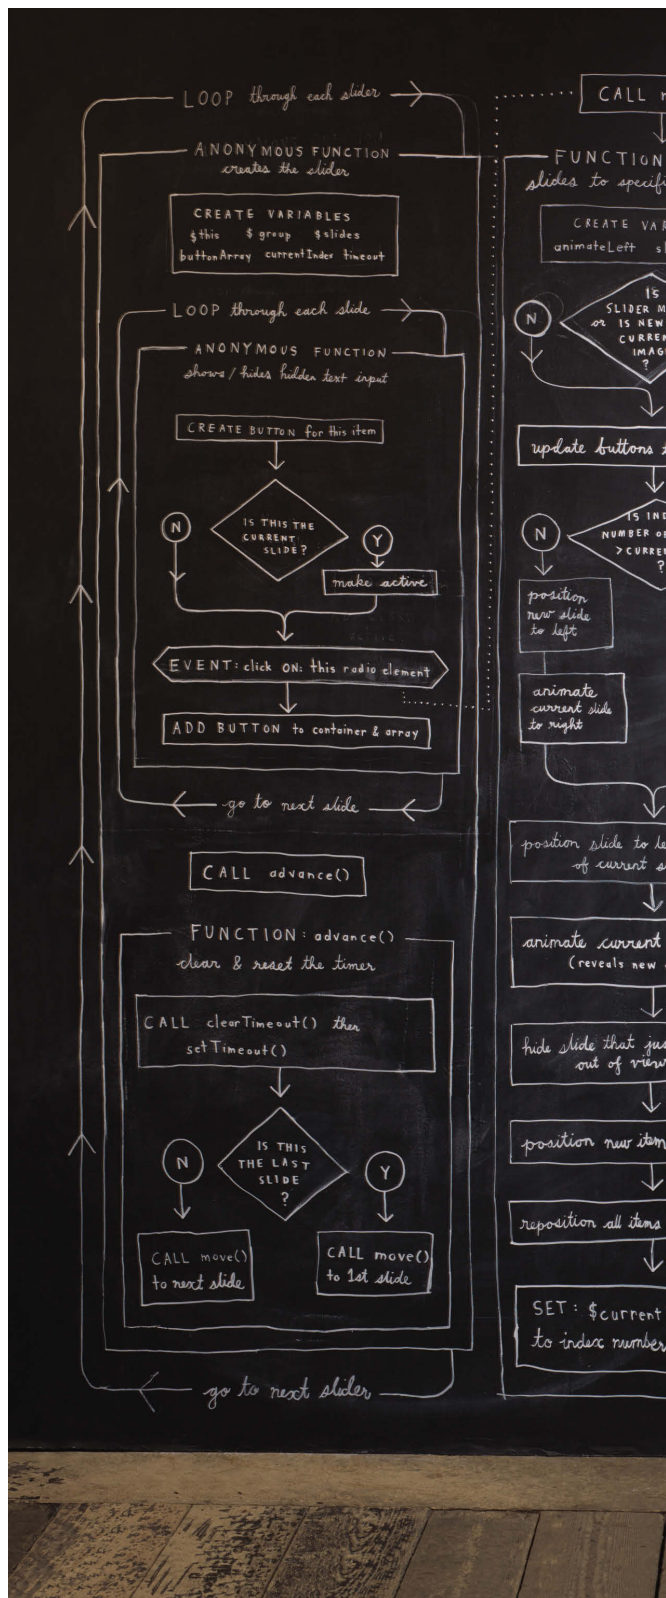 LOOP through each slider
ANONYMOUS FUNCTION
creates the slider
CREATE VARIABLES
$this $group $slides
buttonArray currentIndex timeout
LOOP through each slide
ANONYMOUS FUNCTION
shows/hides hidden text input
CREATE BUTTON for this item
IS THIS THE
CURRENT
SLIDE?
N
Y
make active
EVENT: click ON: this radio element
ADD BUTTON to container & array
go to next slide
CALL advance()
FUNCTION: advance()
clear & reset the timer
CALL clearTimeout() then
setTimeout()
IS THIS
THE LAST
SLIDE
?
N
Y
CALL move()
to next slide
CALL move()
to 1st slide
go to next slider
CALL
FUNCTION
slides to
CREATE
animateLeft
IS
SLIDER
or IS NEW
?
N
update buttons
IS
NUMBER
?
N
position
new slide
to left
animate
current slide
to right
position slide to
of current
animate current
(reveals new
hide slide that
out of
position new
reposition all items
SET: $current
to index number